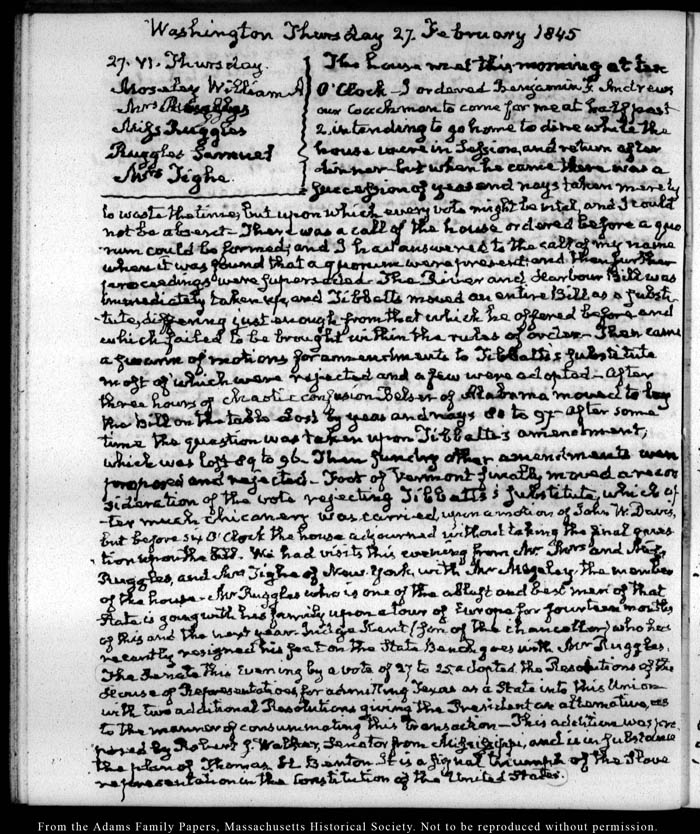 Washington Thursday 27. February 1845
27. VI. Thursday.
Moseley William A
Mrs Ruggles
Miss Ruggles
Ruggles Samuel
Mrs Tighe.
The house met this morning at ten
O'Clock - I ordered Benjamin F. Andrews
our Coachman to come for me at half past
2. intending to go home to dine while the
house were in Session, and return after
dinner but when he came there was a
succession of yeas and nays taken merely
to waste the time, but upon which every vote might be vital, and I could
not be absent - There was a call of the house ordered before a quo
rum could be formed; and I had answered to the call of my name
when it was found that a quorum were present; and then further
proceedings were superseded. The River and Harbour Bill was
immediately taken up, and Tibbatts moved an entire Bill as a substi-
tute, differing just enough from that which he offered before and
which failed to be brought within the rules of order - Then came
a swarm of motions for amendments to Tibbatts's substitute
most of which were rejected and a few were adopted - After
three hours of chaotic confusion Belser of Alabama moved to lay
the Bill on the table Lost by yeas and nays 80 to 97 - After some
time the question was taken upon Tibbatts's amendment,
which was lost 89 to 96. Then sundry other amendments were
proposed and rejected - Foot of Vermont finally moved a recon
sideration of the vote rejecting Tibbatts's substitute, which af-
ter much chicanery was carried, upon a motion of John W. Davis,
but before O'Clock the house adjourned without taking the final ques
tion upon the Bill. We had visits this evening from Mr Mrs and Miss
Ruggles, and Mrs Tighe of New-York, with Mr Moseley the member
of the house - Mr Ruggles who is one of the ablest and best men of that
State is going with his family upon a tour of Europe for fourteen months
of this and the next year. Judge Kent (son of the Chancellor) who has
recently resigned his seat on the State Bench goes with Mr Ruggles.
The Senate this Evening by a vote of 27 to 25 adopted the Resolutions of the
House of Representatives for admitting Texas as a State into this Union
with two additional Resolutions giving the President an alternative, as
to the manner of consummating this transaction - This additive was pro
posed by Robert J. Walker, Senator from Mississippi, and is in substance
the plan of Thomas H. Benton. It is a signal triumph of the Slave
representation in the Constitution of the United States.
From the Adams Family Papers, Massachusetts Historical Society. Not to be reproduced without permission.